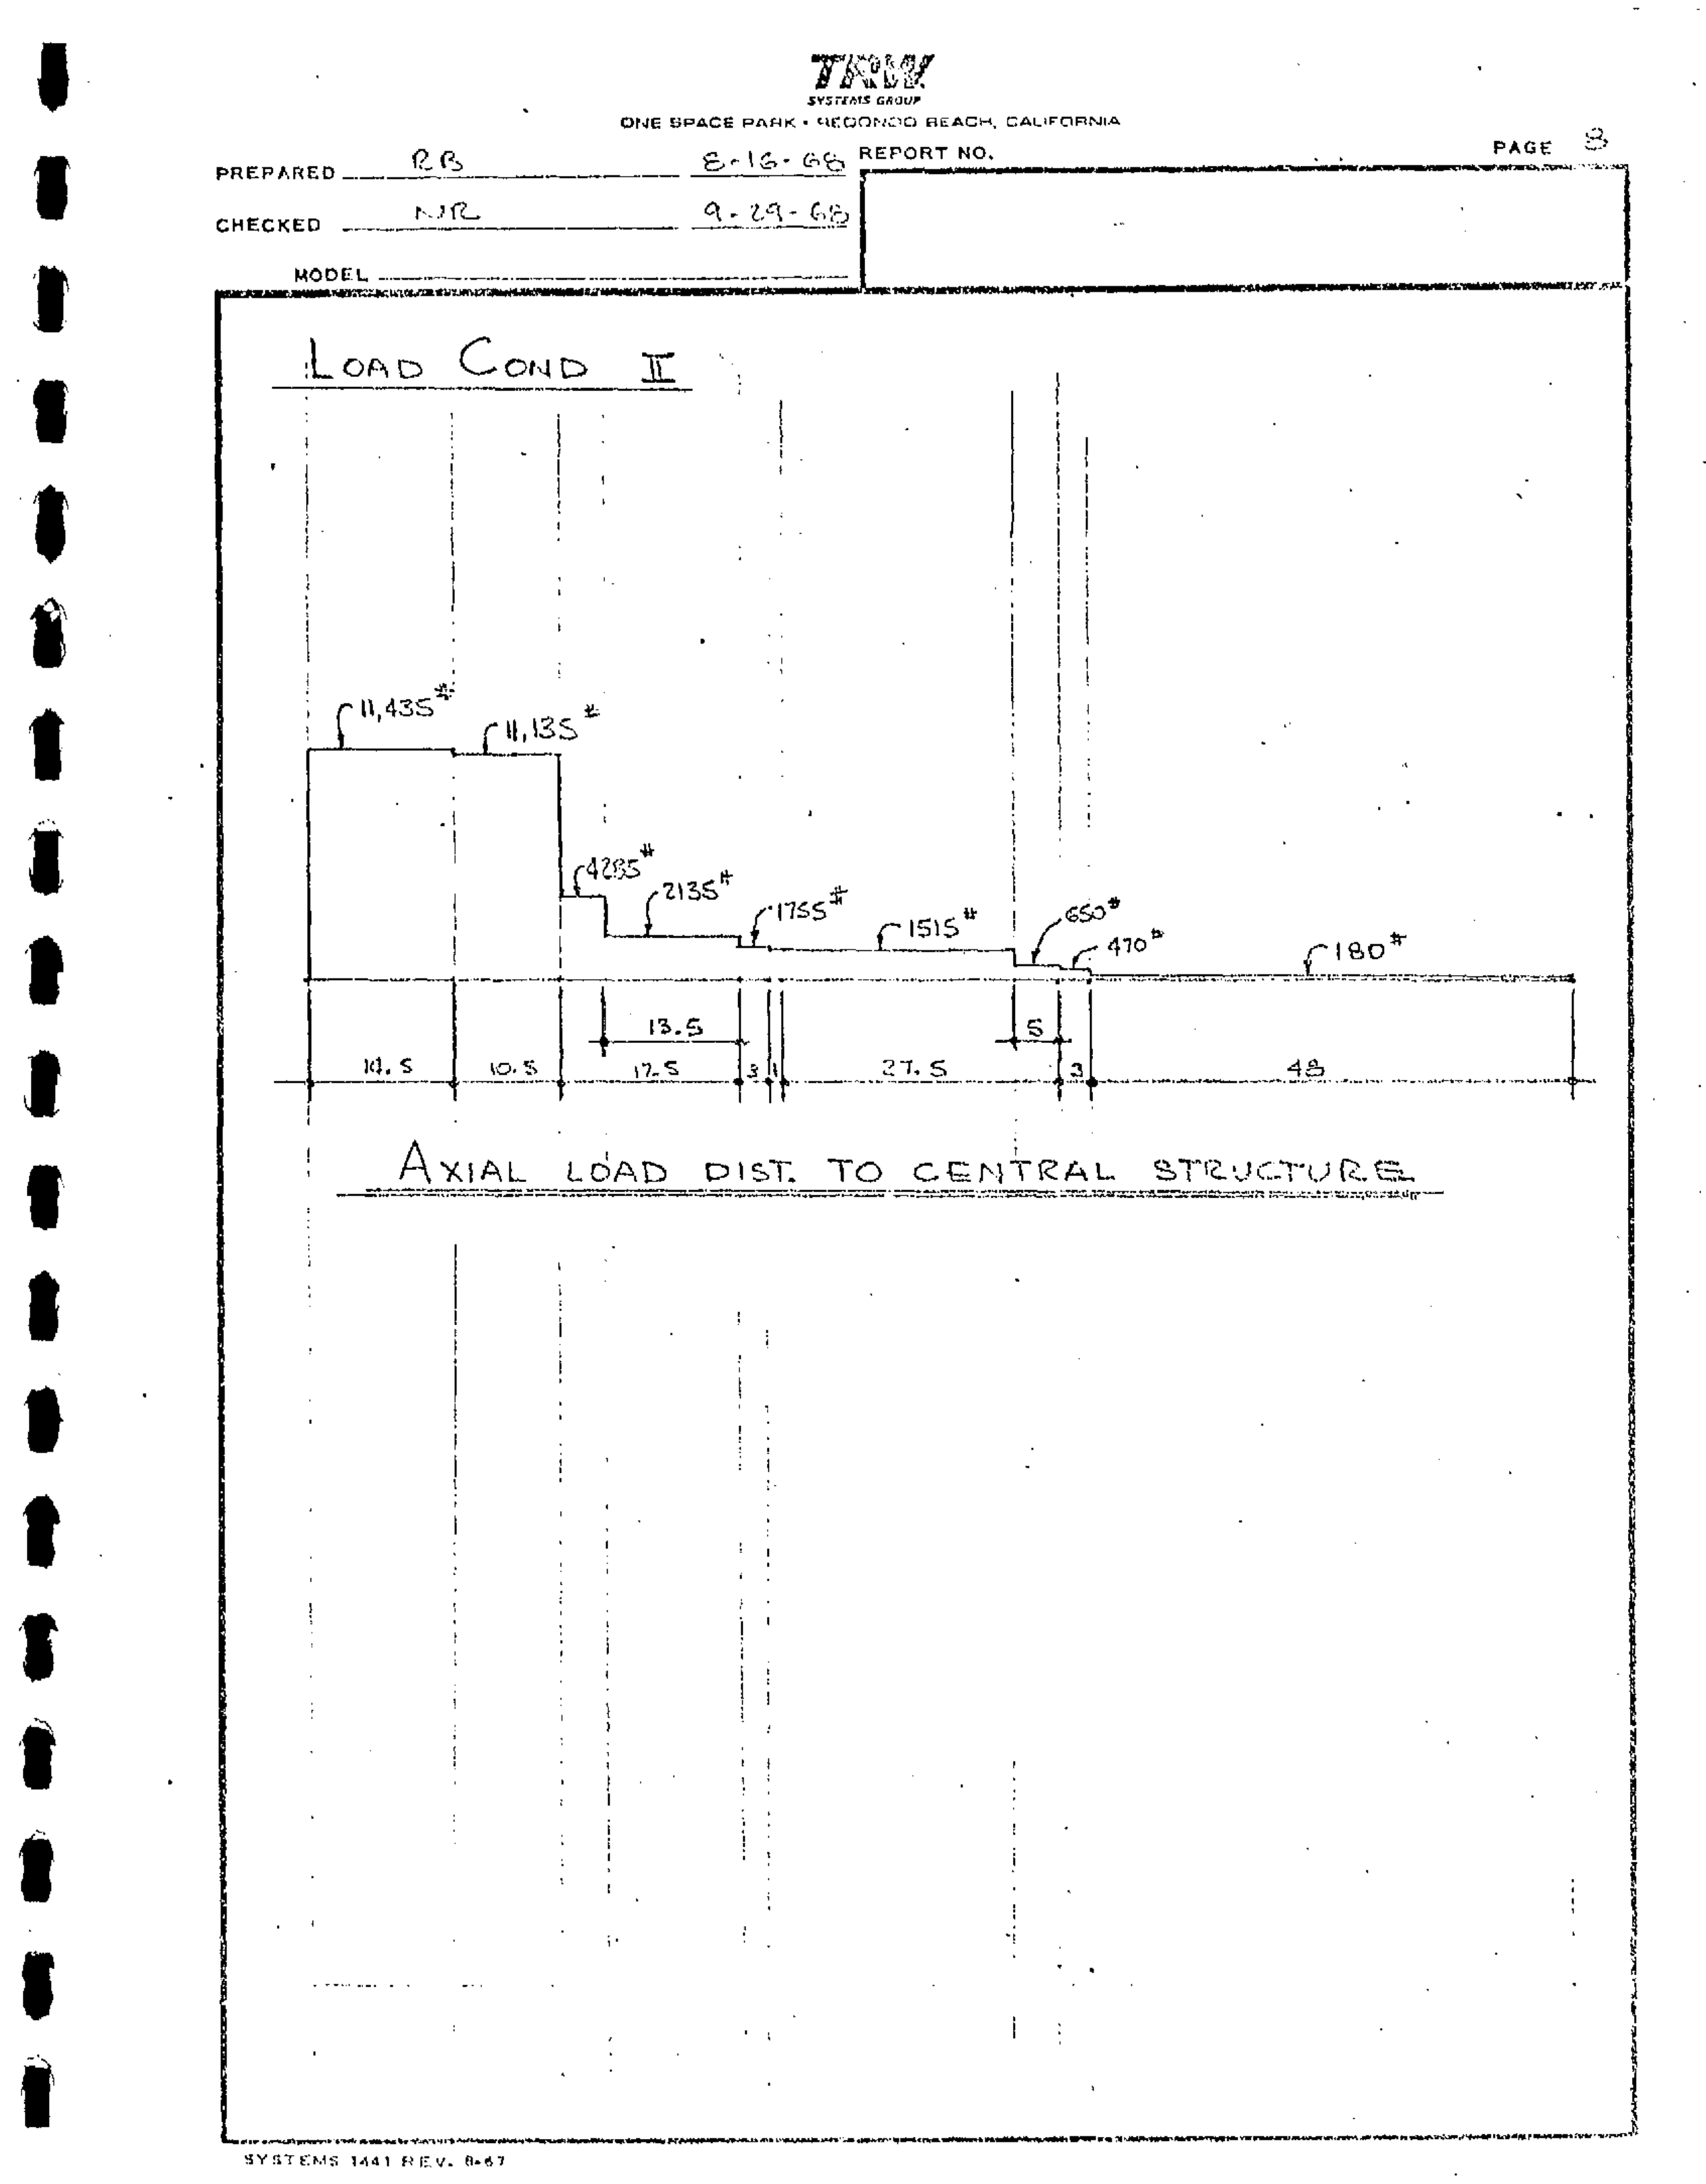 TRW
SYSTEMS GROUP
ONE SPACE PARK • REDONDO BEACH, CALIFORNIA
PREPARED RB 8-16-68 REPORT NO. PAGE 8
CHECKED NR 9-29-68
MODEL
LOAD COND II
11,435#
11,135#
4285#
2135#
1755#
1515#
650#
470#
180#
13.5 5
14.5 10.5 17.5 3 1 27.5 3 48
AXIAL LOAD DIST. TO CENTRAL STRUCTURE
SYSTEMS 1441 REV. 8-67